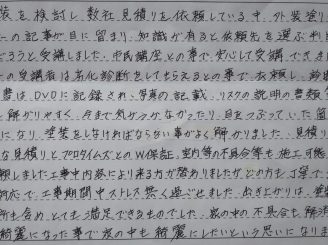 装を検討し、数社見積りを依頼している中、外装塗り
の記事が目に留まり、知識が有ると依頼先を選ぶ判
ろうと受講しました。市民講座との事で、安心して受講でき
の受講者は劣化診断をしてもらえるとの事で、お願し、
書はDVDに記録され、写真の記載、リスクの説明の書類
解りやすく、今まで気づかなかったり、目をつぶっていた
になり、塗装をしなければならない事がよく解かりました。見積り
な見積りとプロタイムズとのW保証、室内等の不具合等も施工可能
頼しました。工事中内容により来る方が替わりましたが、どの方も丁寧で
対応で、工事期間中ストレス無く過ごせました。出き上がりは、
所も含め、とても満足できるものでした。家の中の不具合も解消
綺麗になった事で家の中も綺麗にしたいという思いになりま